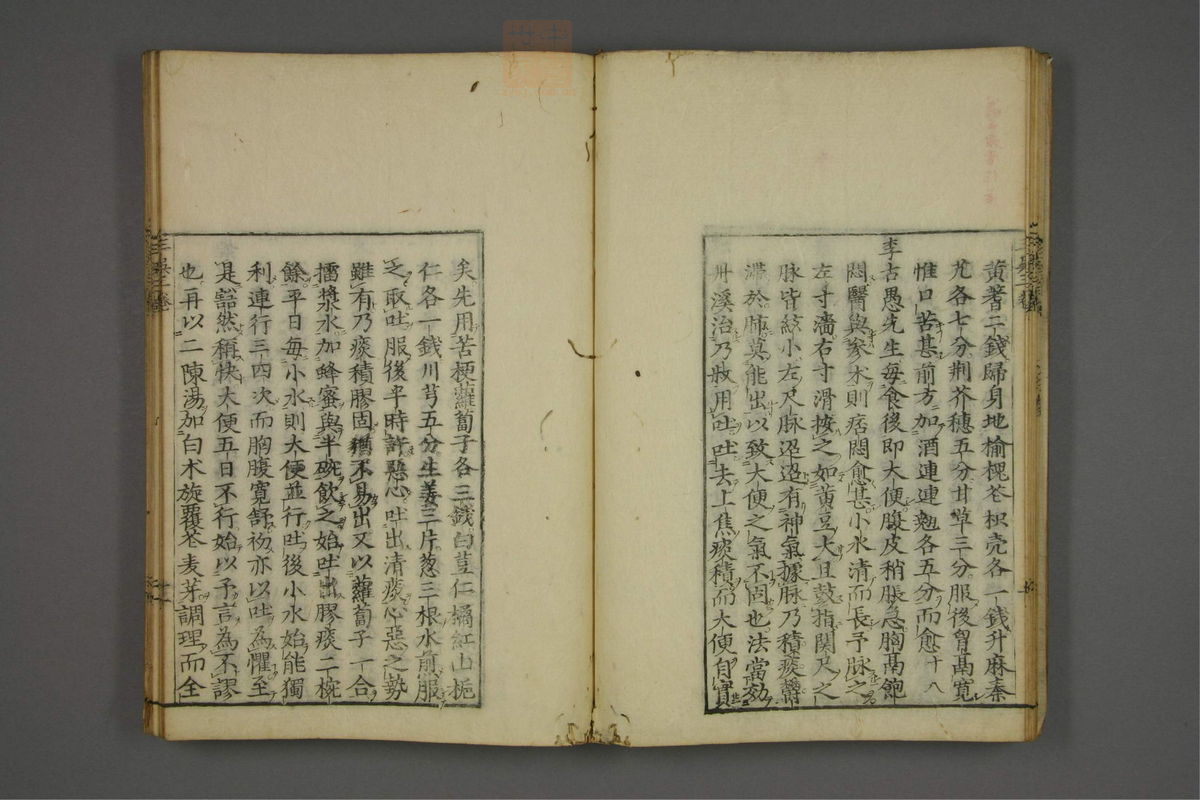 黃蓍二錢歸身地榆槐花枳壳各一錢升麻秦
艽各七分荆芥穗五分甘草三分服後胃鬲寛
惟口苦甚前方加酒連連翹各五分而愈十八
李古愚先生毎食後即大便腹皮稍脹急胸鬲飽
悶醫與參术則痞悶愈甚小水清而長予脉之
左寸濇右寸滑按之如黃豆大且鼓指関尺之
脉皆絃小左尺脉迢迢有神氣據脉乃積痰欝
滞於肺莫能出以致大便之氣不固也法當効
丹溪治乃叔用吐吐去上焦痰積而大便自實
矣先用苦梗蘿蔔子各三錢白豆仁橘紅山梔
仁各一錢川芎五分生姜三片葱三根水煎服
之取吐服後半時許惡心吐出清痰心惡之勢
雖有乃痰積膠固猶不易出又以蘿蔔子一合
擂漿水加蜂蜜與半碗飲之始吐出膠痰二椀
餘平日毎小水則大便並行吐後小水始能獨
利連行三四次而胸腹寛舒初亦以吐為懼至
是豁然稱快大便五日不行始以予言為不謬
也再以二陳湯加白术旋覆花麦芽調理而全